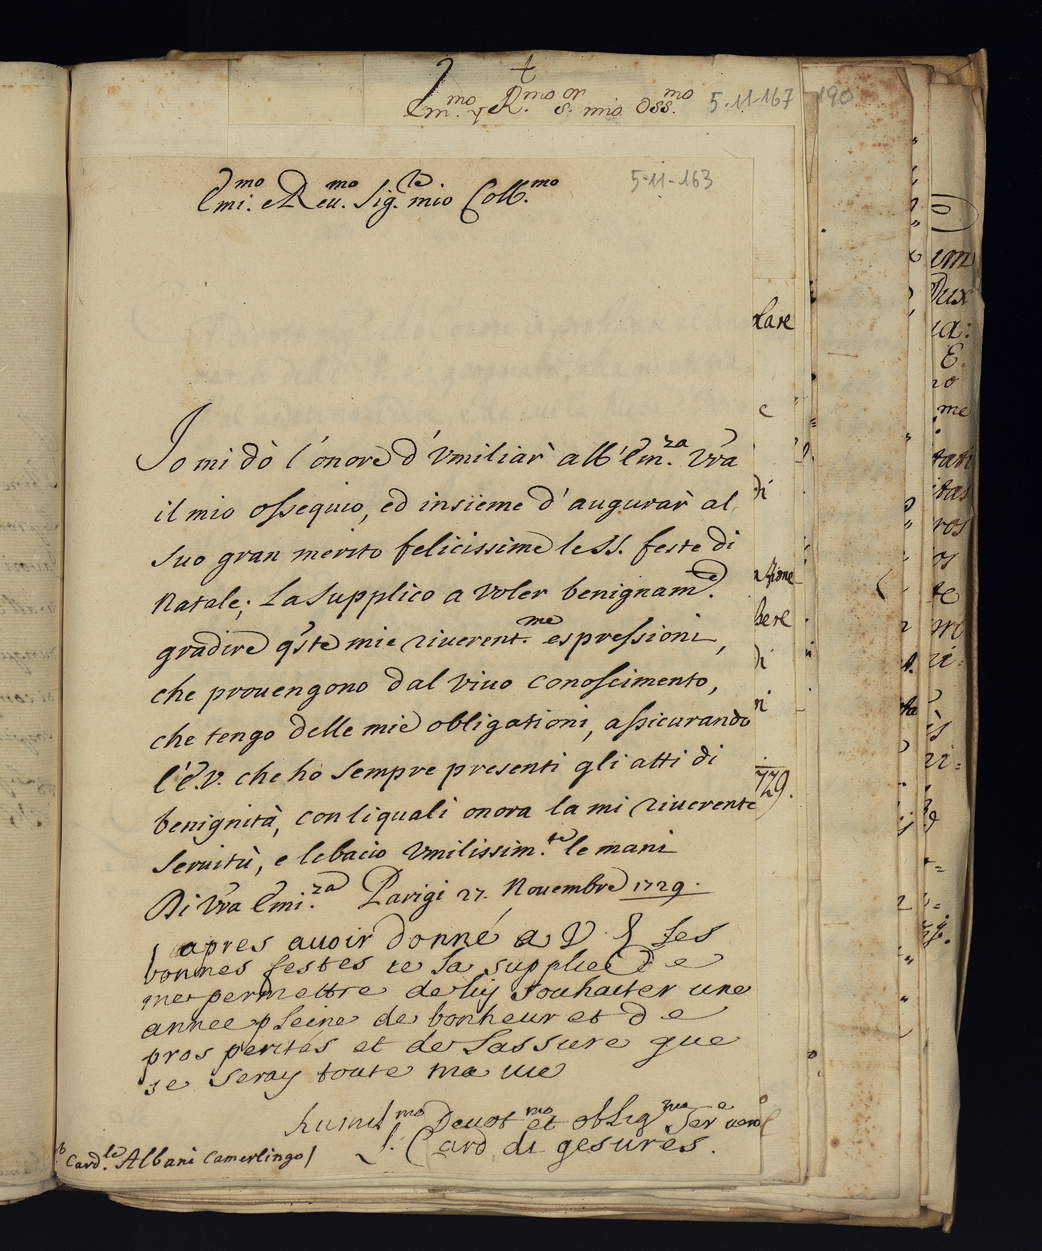 Em.mo e R.mo S.or mio Oss.mo 5-11-167 190
Emi.mo e Reu.mo Sig.re mio Coll.mo 5-11-163
Io mi dò l'onore d'Vmiliar' all'Em.za Vr̃a
il mio ossequio, ed insieme d'augurar' al
suo gran merito felicissime le SS. feste di
Natale; La supplico a voler benignam.te
gradire q̃ste mie riuerent.me espressioni,
che prouengono dal viuo conoscimento,
che tengo delle mie obligationi, assicurando
l'E.V. che ho sempre presenti gli atti di
benignità, con li quali onora la mi riuerente
Seruitù, e le bacio Vmilissim.te le mani
Di Vr̃a Emi.za Parigi 27. Nouembre 1729.
apres auoir donné a V. E les
bonnes festes ie la supplie de
me permettre de luy souhaiter une
annee pleine de bonheur et de
prosperités et de lassure que
je seray toute ma uie
humil.mo Deuot.mo et obblig.mo Ser.e uero
l. Card di gesures.
Card.le Albani Camerlingo/
lare
e
di
zione
bere
di
ni
729.
um
Dux
E.
no
me
tati
itas
ros
os
te